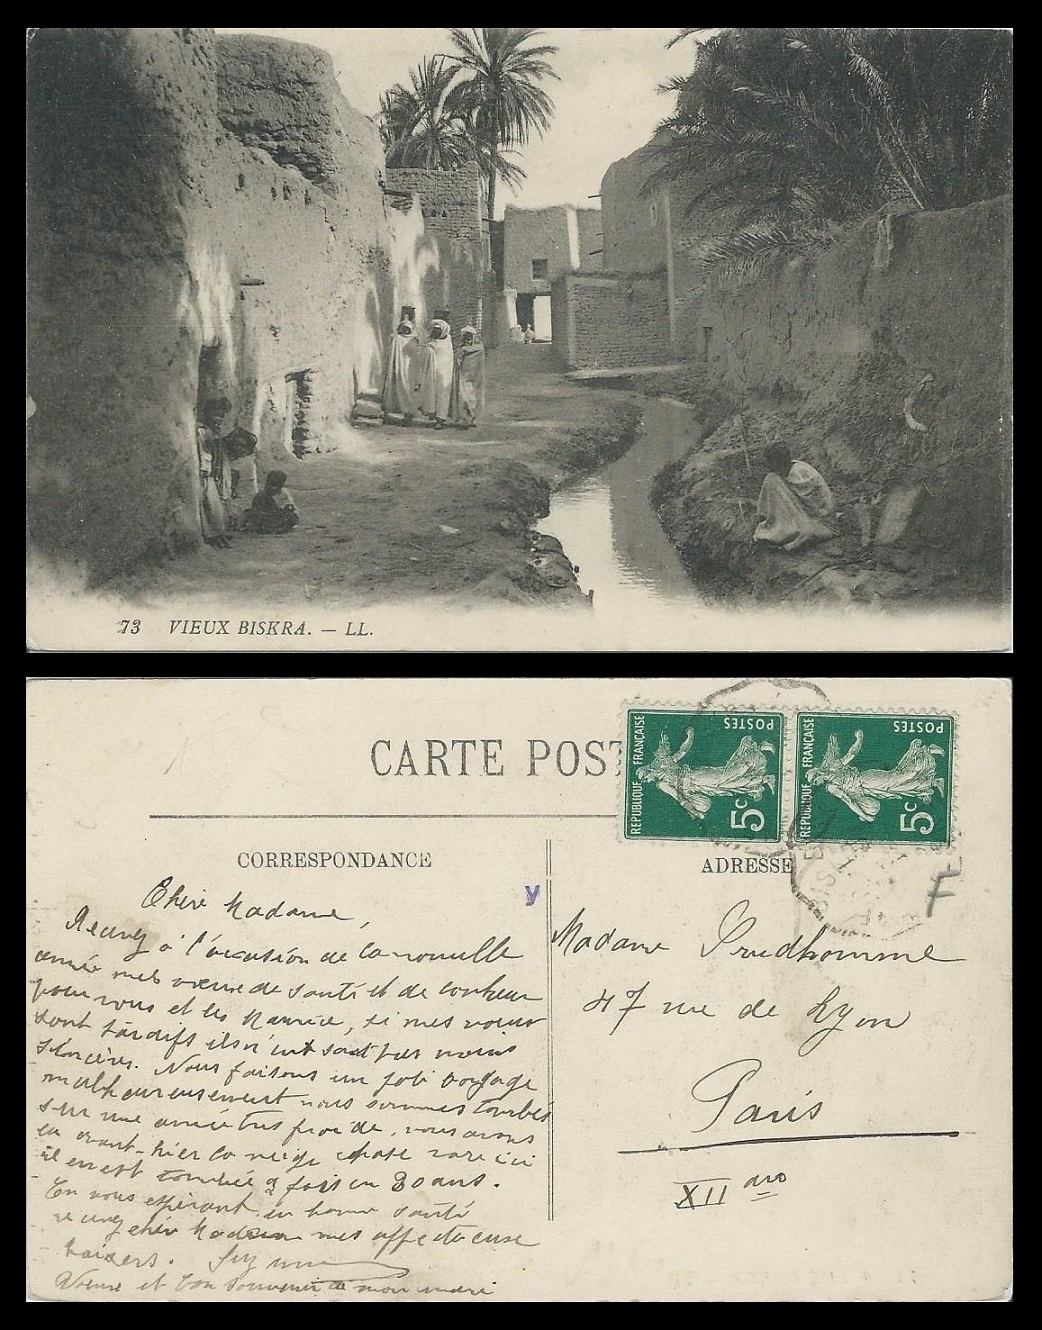 73 VIEUX BISKRA. — LL.
CARTE POST
REPUBLIQUE FRANÇAISE
POSTES
5c
REPUBLIQUE FRANÇAISE
POSTES
5c
CORRESPONDANCE
Chère Madame,
Recevez à l'occasion de la nouvelle
année mes voeux de santé et de bonheur
pour vous et les Maurice, si mes voeux
sont tardifs ils n'en sont pas moins
sincères. Nous faisons un joli voyage
malheureusement nous sommes tombés
sur une année très froide, nous avons
eu avant-hier la neige chose rare ici
il en est tombée 2 fois en 30 ans.
En vous espérant en bonne santé
recevez chère Madame mes affectueux
baisers. Suzanne
Voeux et bon souvenir de mon mari
y
ADRESSE
F
Madame Prudhomme
47 rue de Lyon
Paris
XII arro